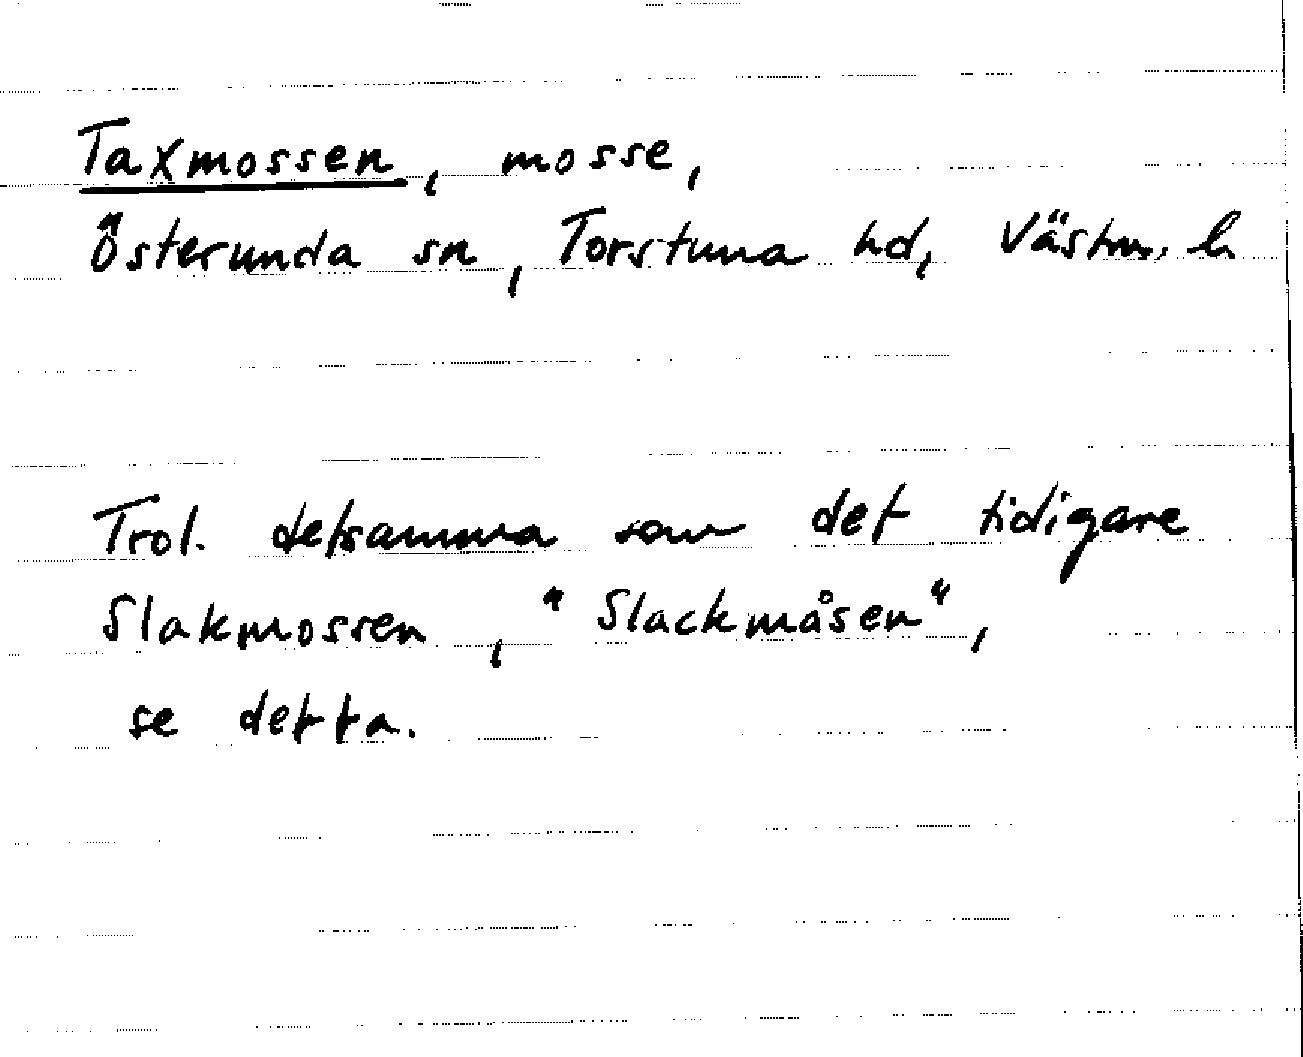 Taxmossen, mosse,
Österunda sn, Torstuna hd, Västm. l.
Trol. detsamma som det tidigare
Slakmossen, "Slackmåsen",
se detta.